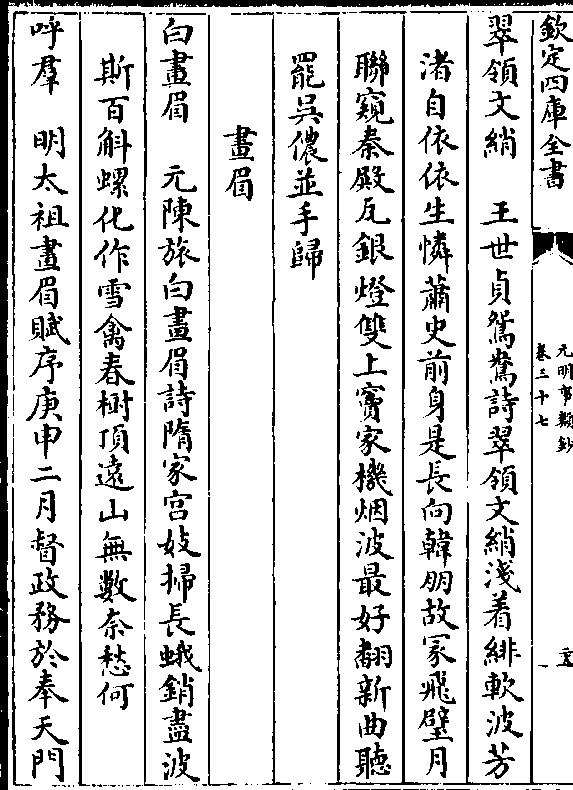 欽定四庫全書
元明事類鈔
卷三十七
翠領文綃　王世貞鴛鴦詩翠領文綃淺着緋軟波芳
渚自依依生憐蕭史前身是長向韓朋故冡飛璧月
聯窺秦殿瓦銀燈雙上竇家機烟波最好翻新曲聽
罷吳儂並手歸
畫眉
白畫眉　元陳旅白畫眉詩隋家宫妓掃長蛾銷盡波
斯百斛螺化作雪禽春樹頂遠山無數奈愁何
呼羣　明太祖畫眉賦序庚申二月督政務於奉天門